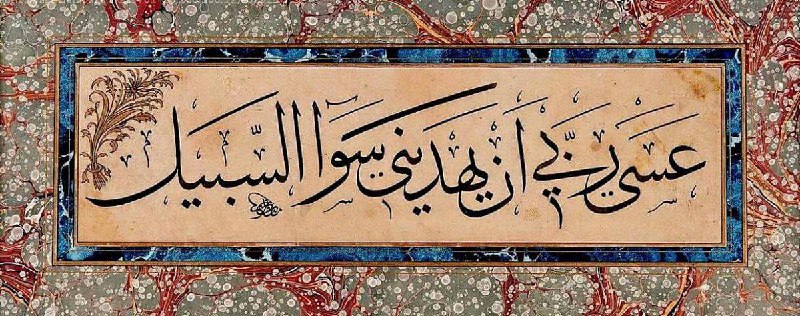 عَسَى رَبِّي أَنْ يَهْدِيَنِي سَوَا السَّبِيلِ